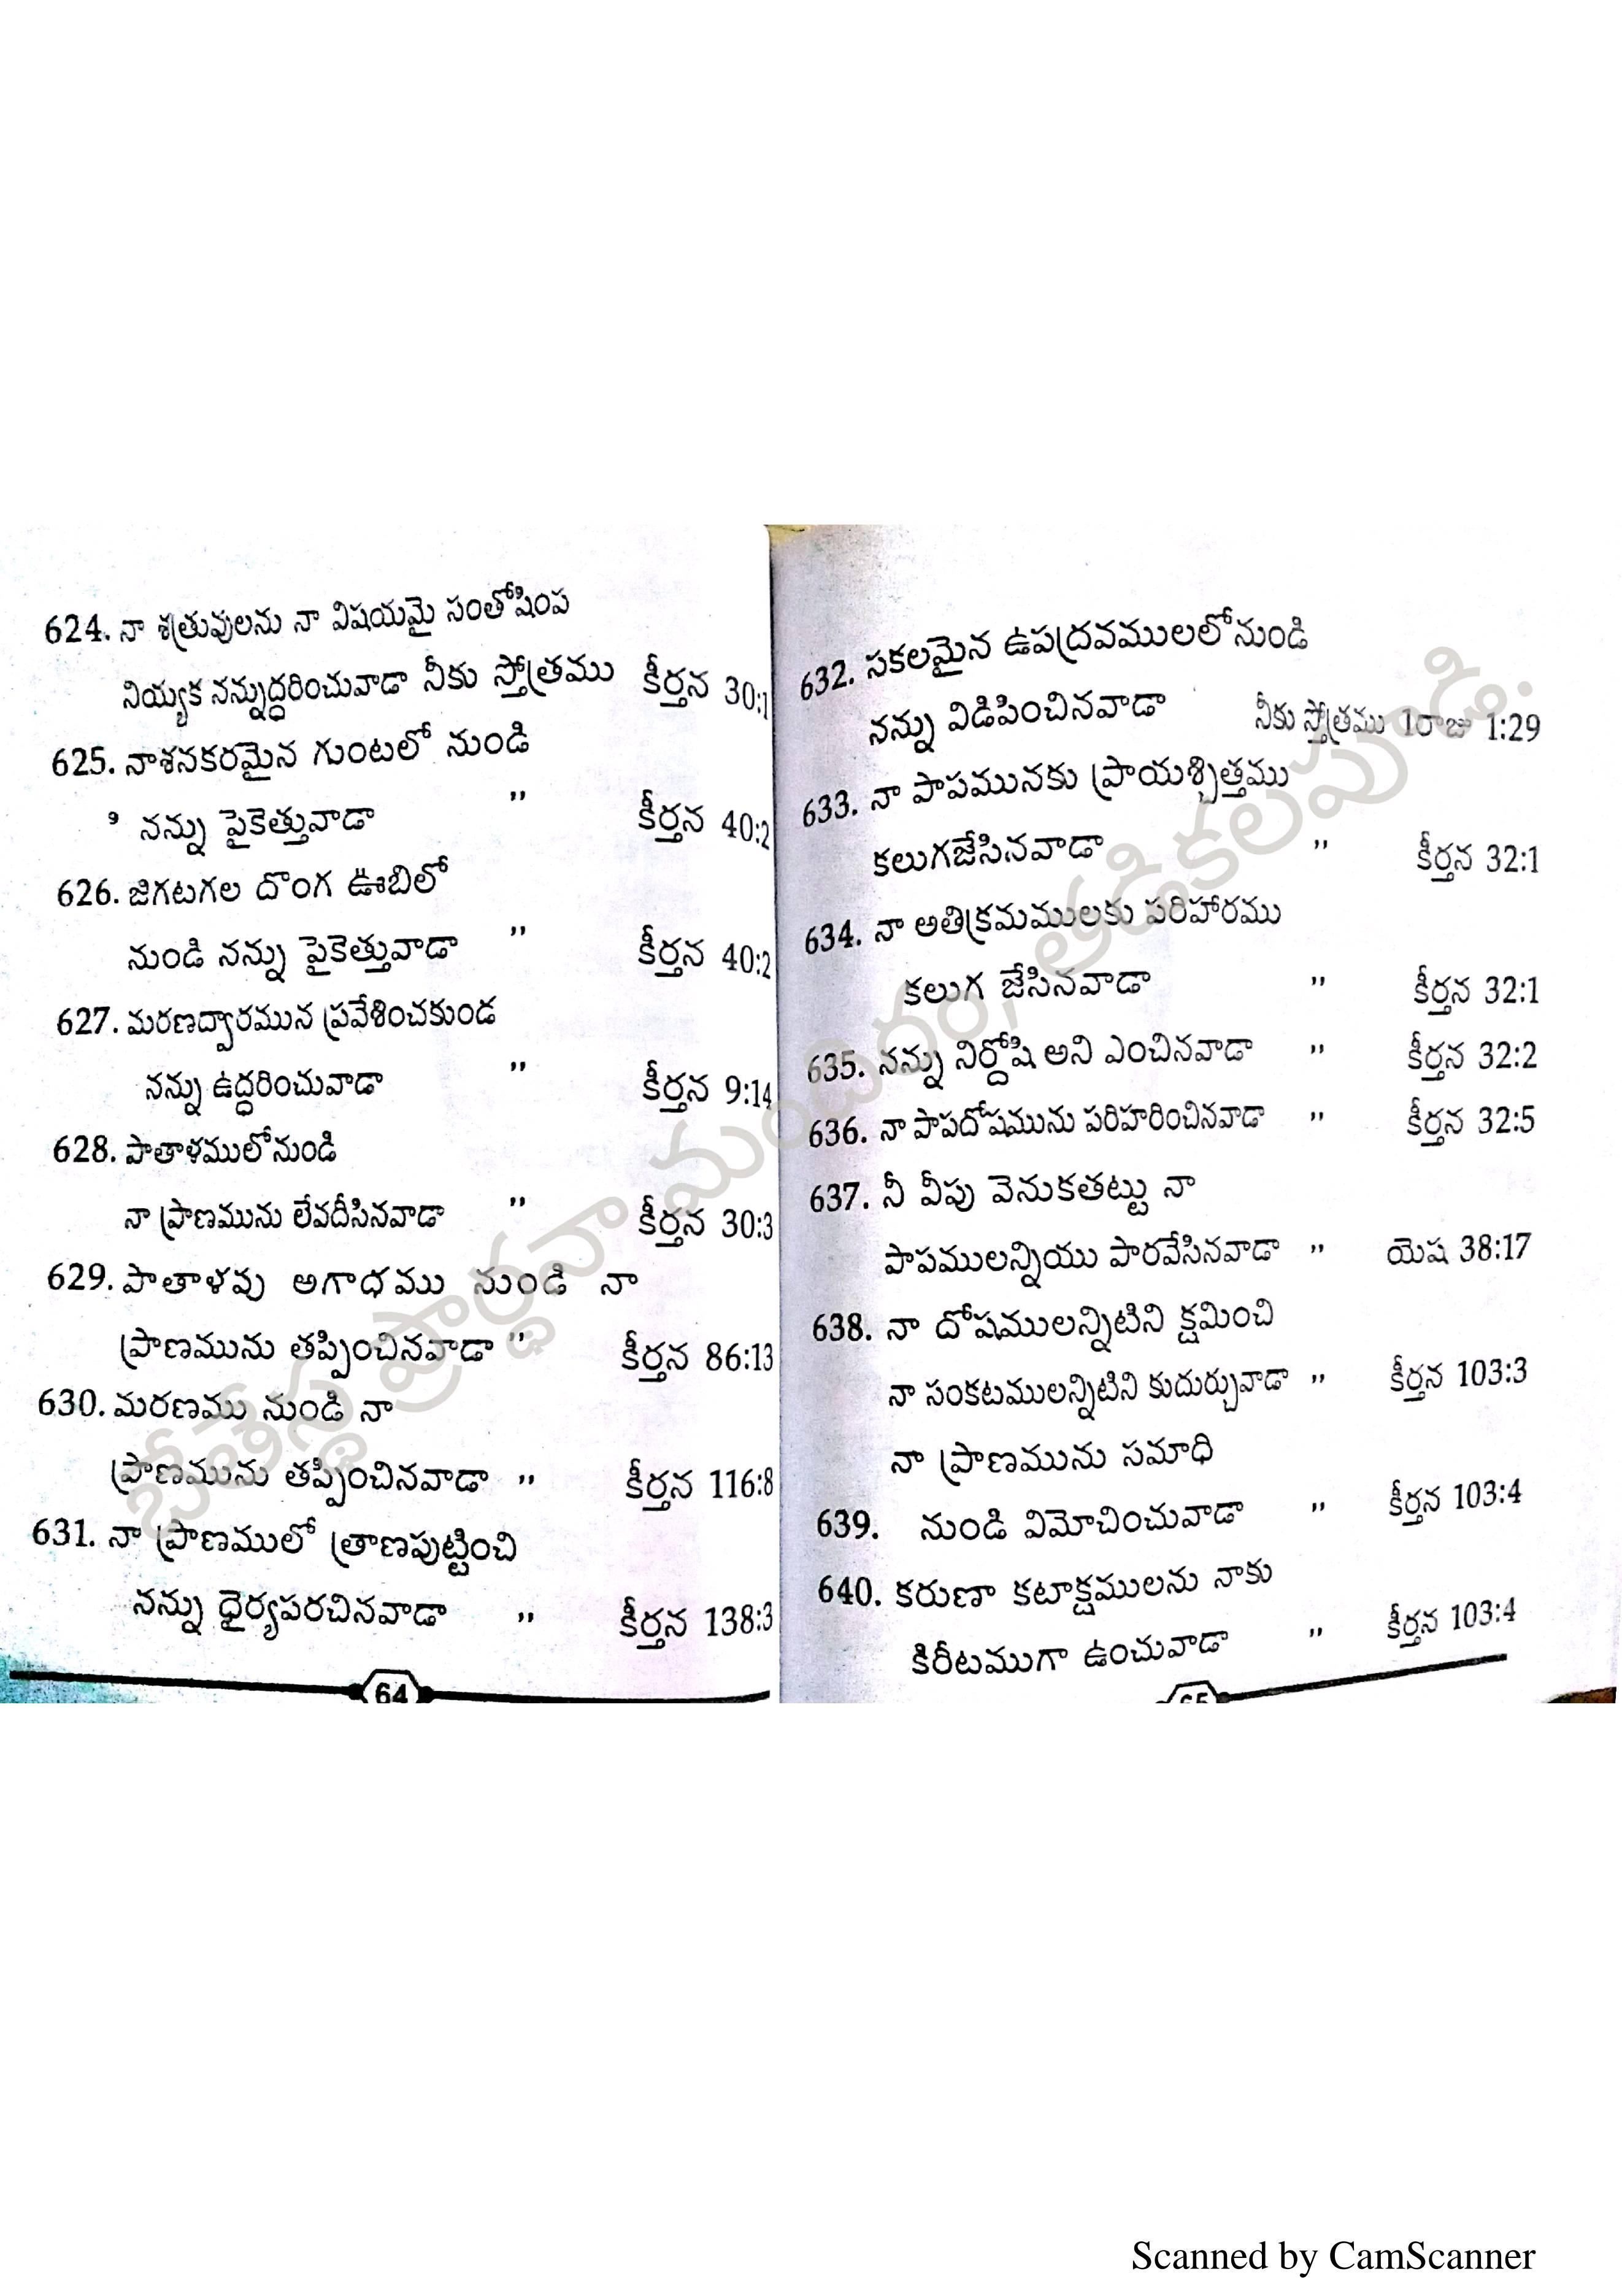 624. నా శత్రువులను నా విషయమై సంతోషింప
నియ్యక నన్నుద్ధరించువాడా నీకు స్తోత్రము కీర్తన 30:1
625. నాశనకరమైన గుంటలో నుండి
నన్ను పైకెత్తువాడా " కీర్తన 40:2
626. జిగటగల దొంగ ఊబిలో
నుండి నన్ను పైకెత్తువాడా " కీర్తన 40:2
627. మరణద్వారమున ప్రవేశించకుండ
నన్ను ఉద్ధరించువాడా " కీర్తన 9:14
628. పాతాళములోనుండి
నా ప్రాణమును లేవదీసినవాడా " కీర్తన 30:3
629. పాతాళవు అగాధము నుండి నా
ప్రాణమును తప్పించినవాడా " కీర్తన 86:13
630. మరణము నుండి నా
ప్రాణమును తప్పించినవాడా " కీర్తన 116:8
631. నా ప్రాణములో త్రాణపుట్టించి
నన్ను ధైర్యపరచినవాడా " కీర్తన 138:3
64
632. సకలమైన ఉపద్రవములలోనుండి
నన్ను విడిపించినవాడా నీకు స్తోత్రము 1రాజు 1:29
633. నా పాపమునకు ప్రాయశ్చిత్తము
కలుగజేసినవాడా " కీర్తన 32:1
634. నా అతిక్రమములకు పరిహారము
కలుగ జేసినవాడా " కీర్తన 32:1
635. నన్ను నిర్దోషి అని ఎంచినవాడా " కీర్తన 32:2
636. నా పాపదోషమును పరిహరించినవాడా " కీర్తన 32:5
637. నీ వీపు వెనుకతట్టు నా
పాపములన్నియు పారవేసినవాడా " యెష 38:17
638. నా దోషములన్నిటిని క్షమించి
నా సంకటములన్నిటిని కుదుర్చువాడా " కీర్తన 103:3
నా ప్రాణమును సమాధి
639. నుండి విమోచించువాడా " కీర్తన 103:4
640. కరుణా కటాక్షములను నాకు
కిరీటముగా ఉంచువాడా " కీర్తన 103:4
65
బేతేస్థ ప్రార్థనా మందిరం, తడికలపూడి.
Scanned by CamScanner